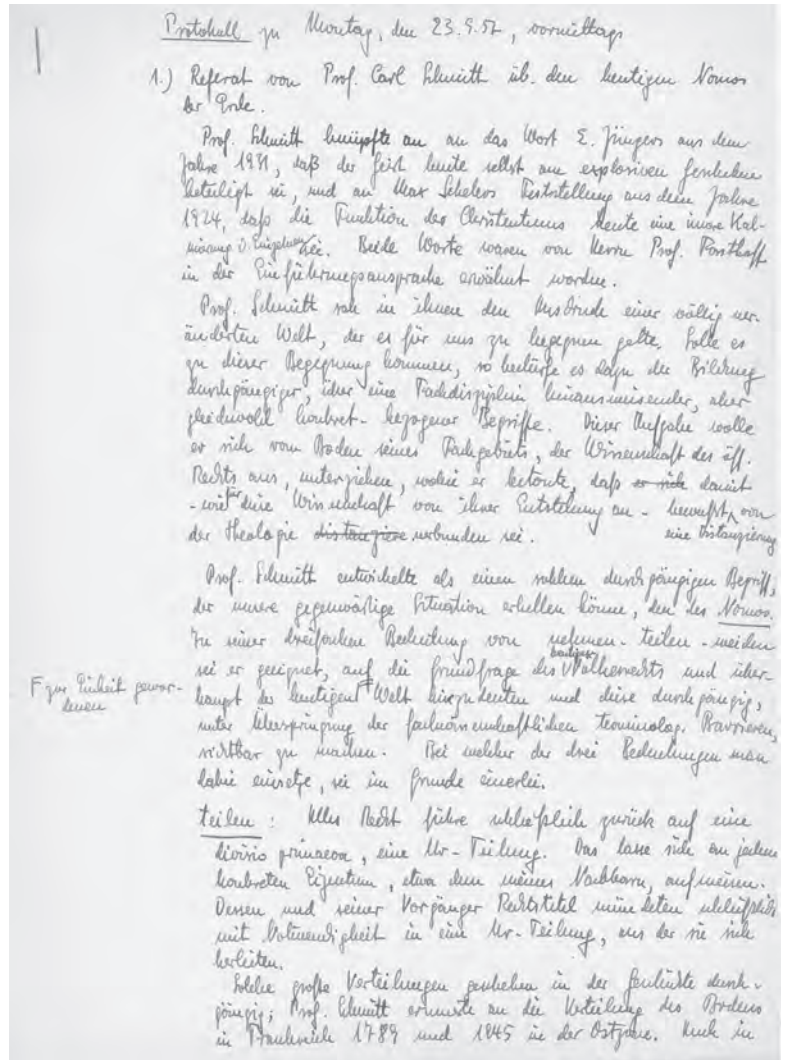 Protokoll zu Montag, den 23.9.57, vormittags
1.) Referat von Prof. Carl Schmitt üb. den heutigen Nomos
der Erde.
Prof. Schmitt knüpfte an an das Wort E. Jüngers aus dem
Jahre 1931, daß der Geist heute selbst am explosiven Geschehen
beteiligt sei, und an Max Schelers Feststellung aus dem Jahre
1924, daß die Funktion des Christentums heute eine innere
d. Einzelnen sei. Beide Worte waren von Herrn Prof. Forsthoff
in der Einführungsansprache erwähnt worden.
Prof. Schmitt sah in ihnen den Ausdruck einer völlig ver-
änderten Welt, der es für uns zu begegnen gelte. Solle es
zu dieser Begegnung kommen, so bedürfe es dazu der Bildung
durchgängiger, über eine Fachdisziplin hinausweisender, aber
gleichwohl konkret-bezogener Begriffe. Dieser Aufgabe wolle
er sich vom Boden seines Fachgebiets, der Wissenschaft des öff.
Rechts aus, unterziehen, wobei er betonte, daß er sich damit
- wie diese Wissenschaft von ihrer Entstehung an - bewußt von
der Theologie distanziere verbunden sei. eine Distanzierung
Prof. Schmitt entwickelte als einen solchen durchgängigen Begriff,
der unsere gegenwärtige Situation erhellen könne, den des Nomos.
In seiner dreifachen Bedeutung von nehmen - teilen - weiden
sei er geeignet, auf die Grundfrage des heutigen Völkerrechts und über-
haupt der heutigen Welt hinzudeuten und diese durchgängig,
F zur Einheit gewor-
denen
unter Überspringung der fachwissenschaftlichen terminolog. Barrieren,
sichtbar zu machen. Bei welcher der drei Bedeutungen man
dabei einsetze, sei im Grunde einerlei.
teilen: Alles Recht führe schließlich zurück auf eine
divisio primaeva, eine Ur-Teilung. Das lasse sich an jedem
konkreten Eigentum, etwa dem meines Nachbarn, aufweisen.
Dessen und seiner Vorgänger Rechtstitel mündeten schließlich
mit Notwendigkeit in eine Ur-Teilung, aus der sie sich
herleiten.
Solche große Verteilungen geschehen in der Geschichte durch-
gängig; Prof. Schmitt erinnerte an die Verteilung des Bodens
in Frankreich 1789 und 1945 in der Ostzone. Auch in